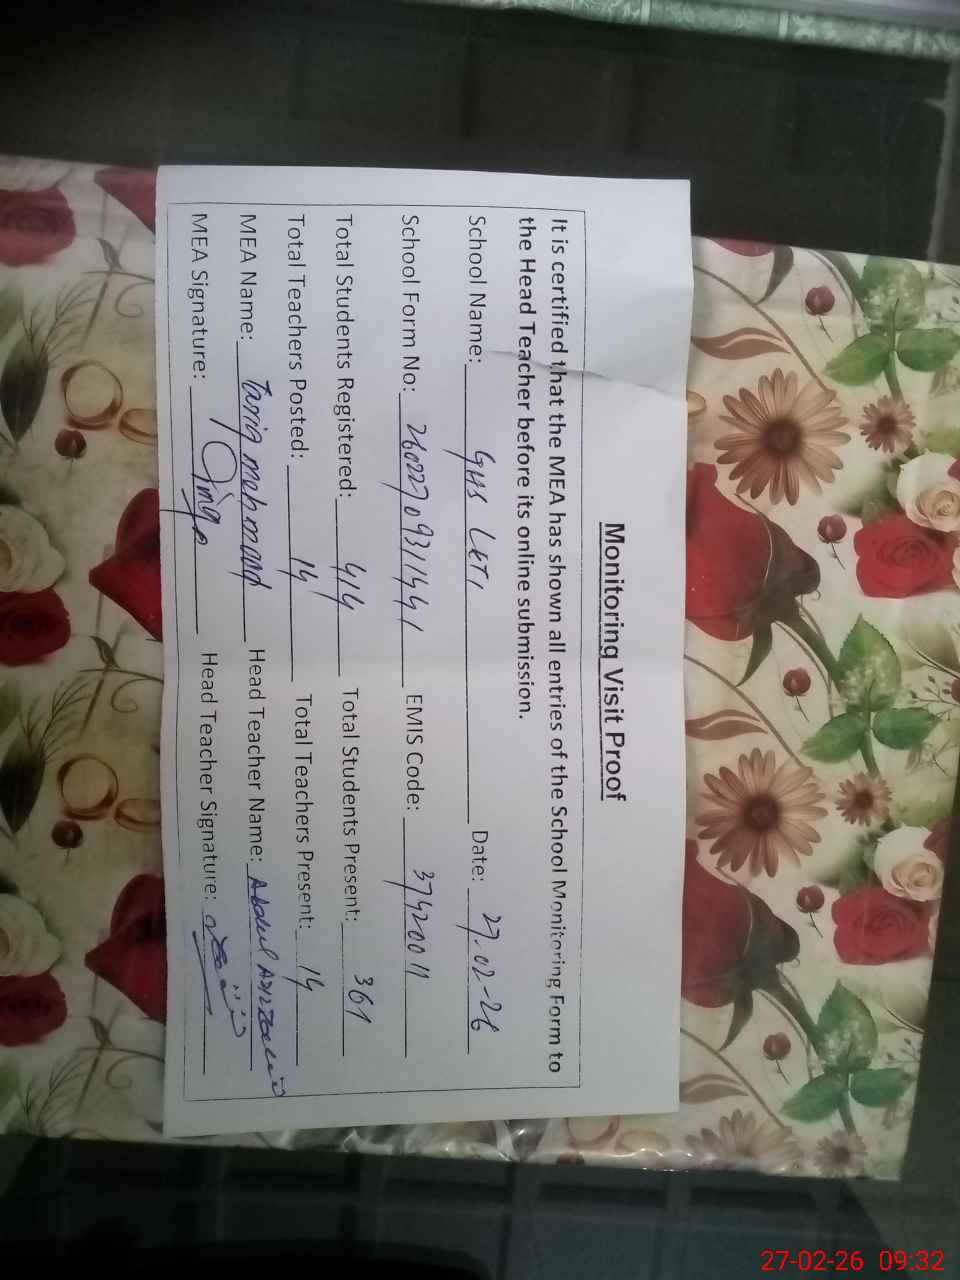 Monitoring Visit Proof
It is certified that the MEA has shown all entries of the School Monitoring Form to
the Head Teacher before its online submission.
School Name: GHS LETI Date: 27-02-26
School Form No: 26022709311441 EMIS Code: 37420011
Total Students Registered: 414 Total Students Present: 361
Total Teachers Posted: 14 Total Teachers Present: 14
MEA Name: Tariq mehmood Head Teacher Name: Abdul Aziz
MEA Signature: Head Teacher Signature:
27-02-26 09:32